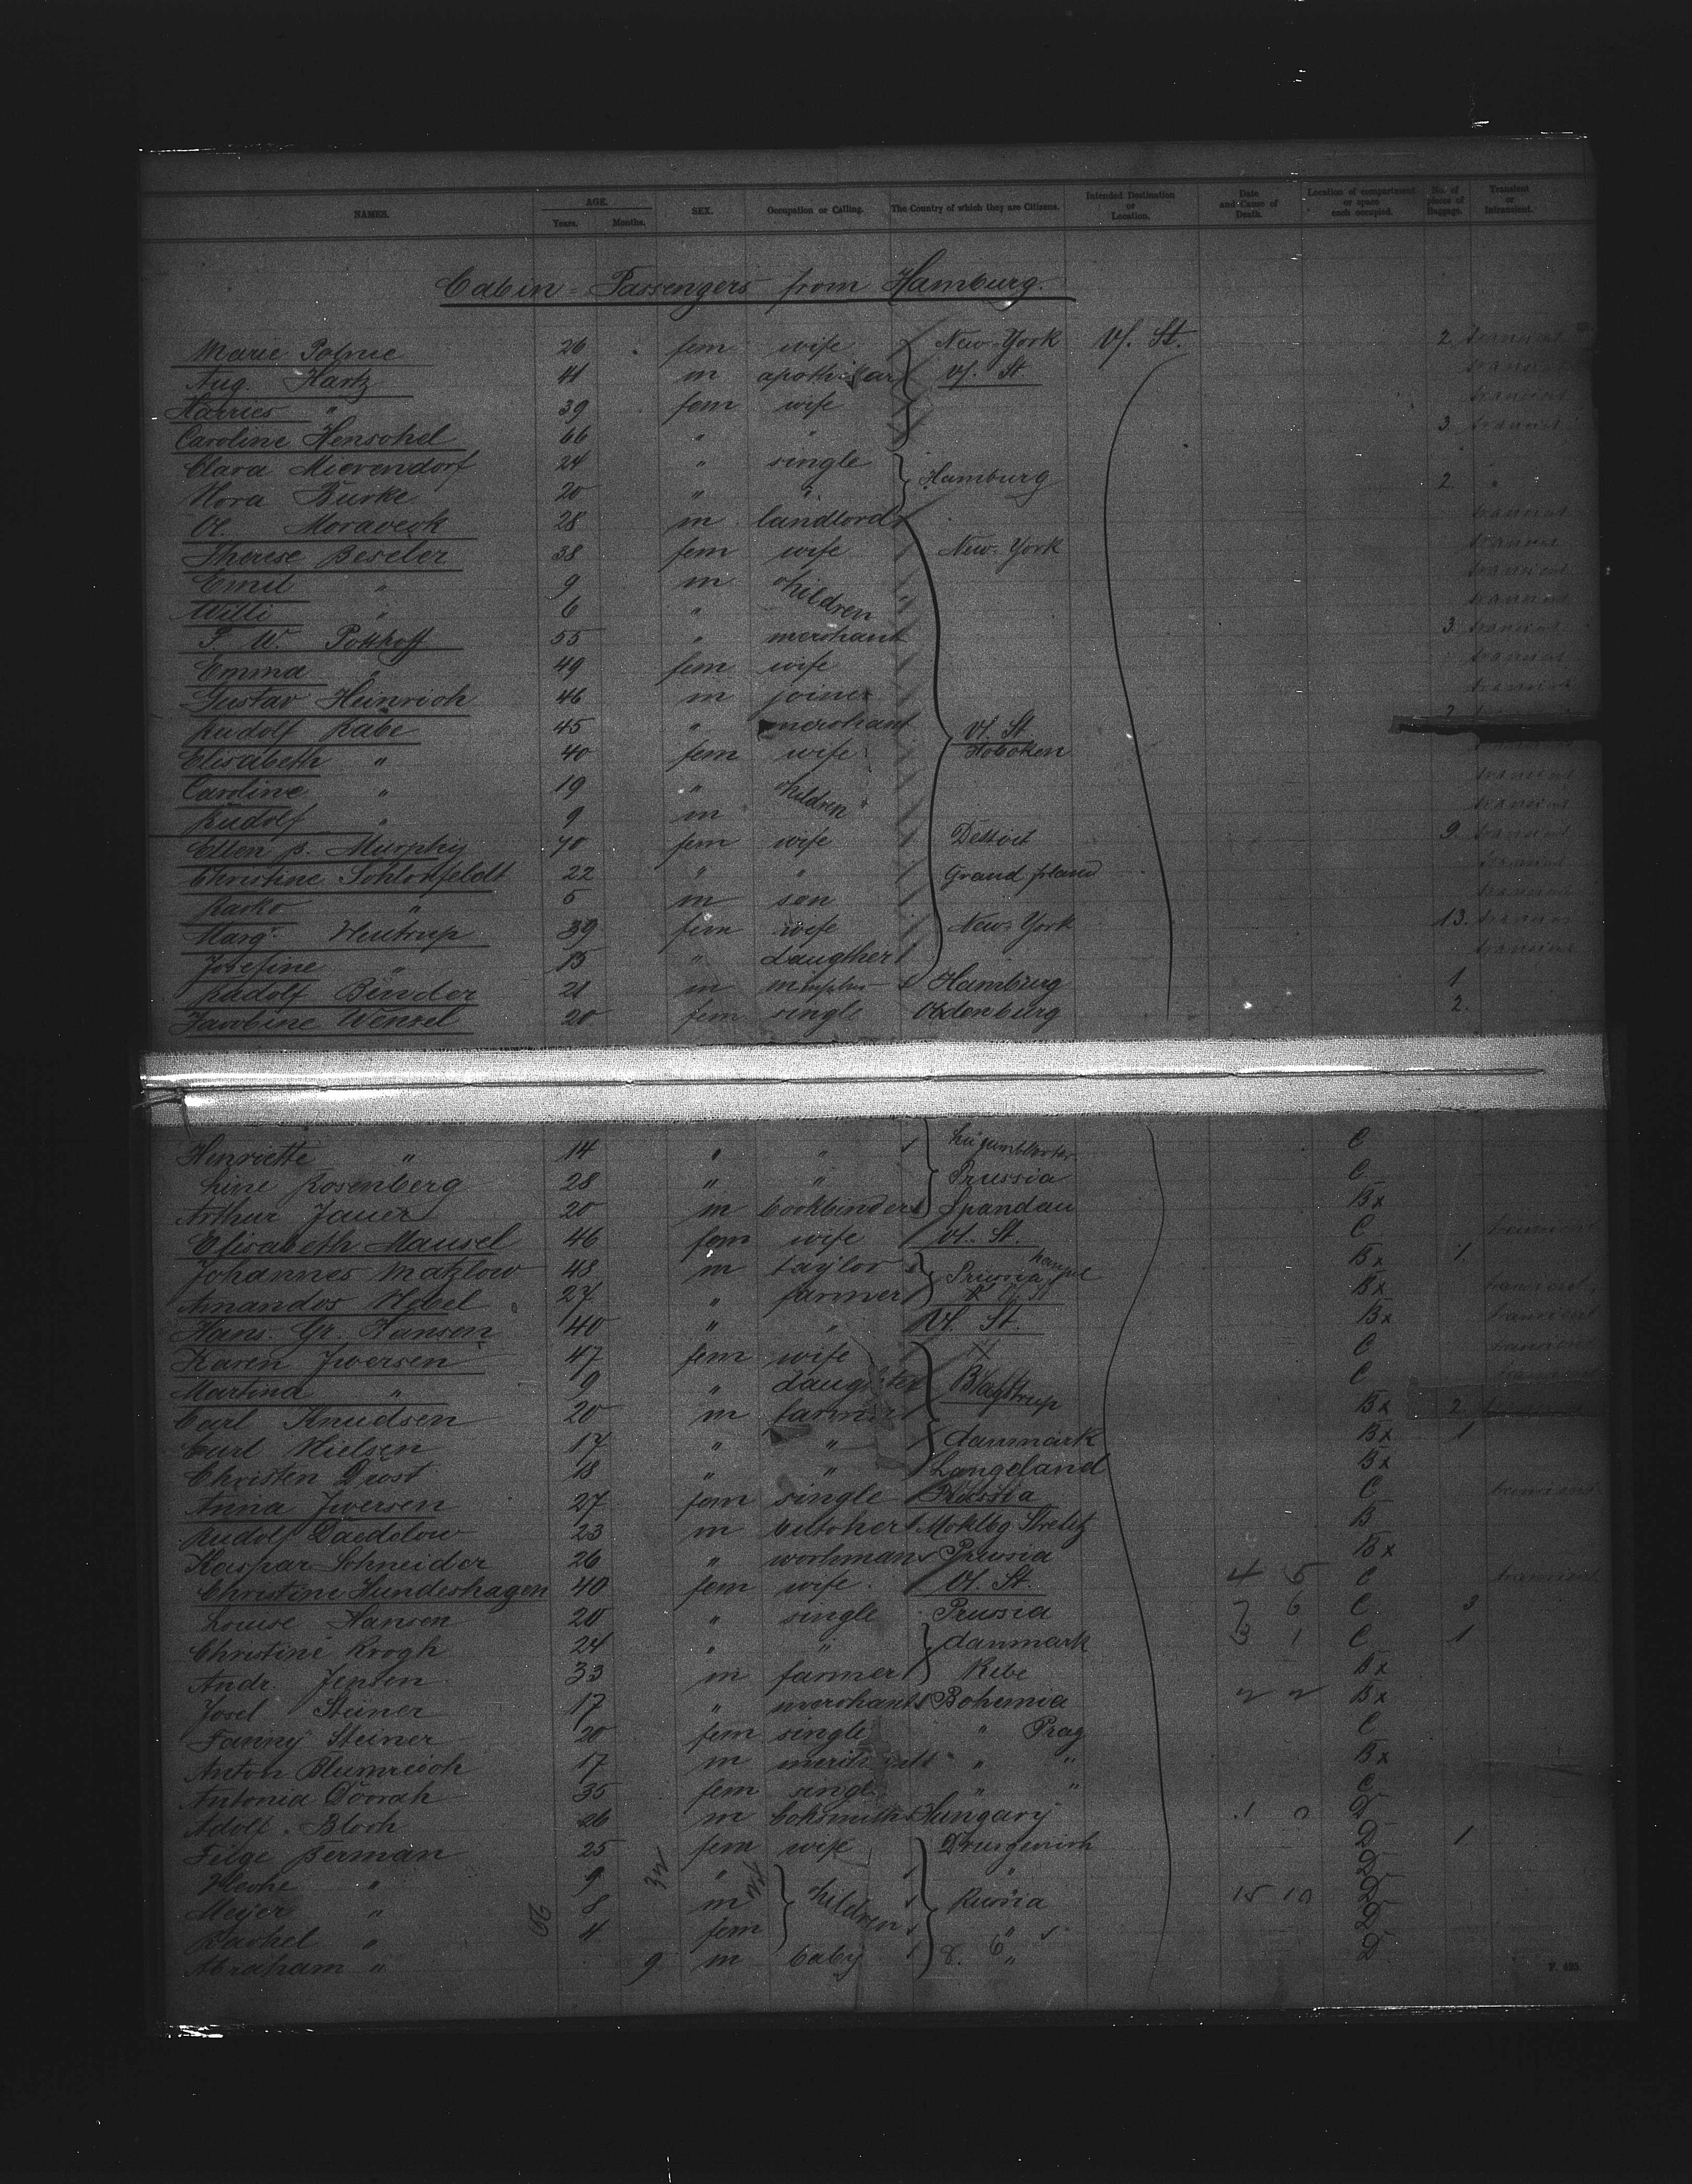 NAMES. AGE. Years. Months. SEX. Occupation or Calling. The Country of which they are Citizens. Intended Destination or Location. Date and Cause of Death. Location of compartment or space each occupied. No. of pieces of Baggage. Transient or Intransient.
Cabin-Passengers from Hamburg.
Marie 26 fem wife New-York V. St. 2 transient
Aug. Hartz 41 m V. St. transient
Harries " 39 fem wife transient
Caroline Henschel 66 " " 3 transient
Clara Mierendorf 24 " single Hamburg
Nora Burke 20 " " 2 "
Moraveck 28 m landlord transient
Therese Beseler 38 fem wife New-York transient
Emil " 9 m children transient
Willi " 6 " transient
W. Potthoff 55 " merchant 3 transient
Emma " 49 fem wife transient
Gustav Heinrich 46 m joiner transient
Rudolf Rabe 45 " merchant V. St.
Elisabeth " 40 fem wife Hoboken
Caroline " 19 " children transient
Rudolf " 9 m transient
Ellen Murphy 40 fem wife Detroit 9 transient
Christine Schlonfeldt 22 " " Grand transient
" 5 m son transient
Marg. 39 fem wife New-York 13. transient
Josefine " 15 " daugther transient
Rudolf Binder 21 m Hamburg 1
Jacobine Wensel 20 fem single 2.
Henriette " 14 " " C
Line Rosenberg 28 " " Prussia C
Arthur Jauer 20 m bookbinder Spandau Bx
Elisabeth Mansel 46 fem wife V. St. C transient
Johannes Matzlow 48 m taylor Prussia Bx 1.
Amandos Nebel 27 " farmer Bx transient
Hans Gr. Hansen 40 " " V. St. Bx transient
Karen Jwersen 47 fem wife C transient
Martina " 9 " daugther C
Carl Knudsen 20 m farmer Bx 2
Carl Nielsen 17 " " danmark Bx 1
Christen Drost 18 " " Langeland Bx
Anna Jwersen 27 fem single Prussia C transient
Rudolf Daedelow 23 m butcher Moklbg Strelitz B
Kaspar Schneider 26 " workman Prussia Bx
Christine Hundeshagen 40 fem wife V. St. 4 5 C transient
Louise Hansen 20 " single Prussia 7 6 C 3
Christine Krogh 24 " " danmark 3 1 C 1
Andr. Jensen 33 m farmer Ribe Bx
Josef Steiner 17 " merchant Bohemia Bx
Fanny Steiner 20 fem single " Prag C
Anton 17 m " " Bx
Antonia 35 fem single " " C
Adolf Bloch 26 m Hungary 1 0 D
Feige Berman 25 fem wife D 1
" 9 " " D
Meyer " 8 m children Russia 15 10 D
Rachel " 4 fem " D
Abraham " 9 m baby " D